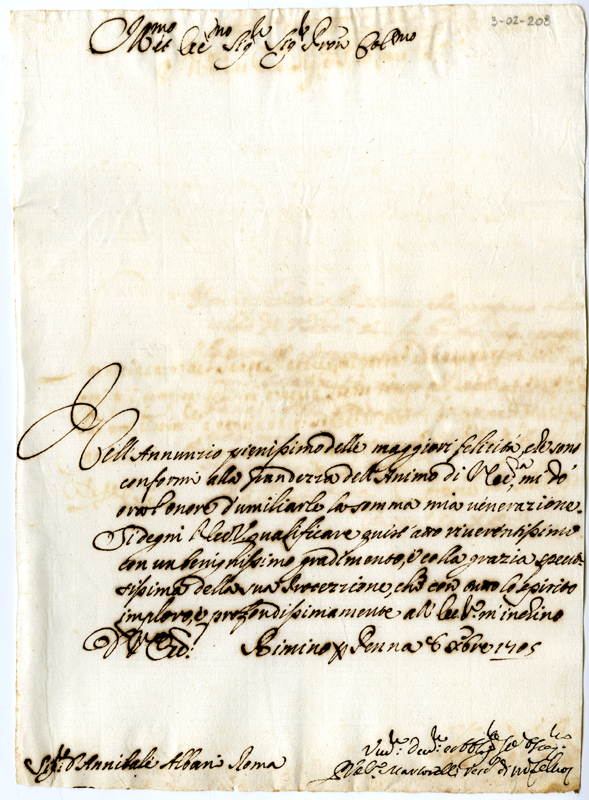 3-02-208
Ill.mo et Ecc.mo Sig.re Sig.r Pron Col.mo
Nell'Annunzio pienissimo delle maggiori felicità, che sono
conformi alla grandezza dell'Animo di V. Ecc.a, mi dò
ora l'onore d'umiliarle la somma mia venerazione.
Si degni l'Ecc.V. qualificare quest'atto riverentissimo
con un benignissimo gradimento, e colla grazia specia-
tissima della sua Protezzione, che con tutto lo spirito
imploro, e profondissimamente all'Ecc.V. m'inchino
Di V. Ecc.
Rimino Penna 6 Xbre 1705
Sig.r D. Annibale Albani Roma
Um.o Dev.o et Obb.o Se.
Martorelli Vesc.o di Montefeltro